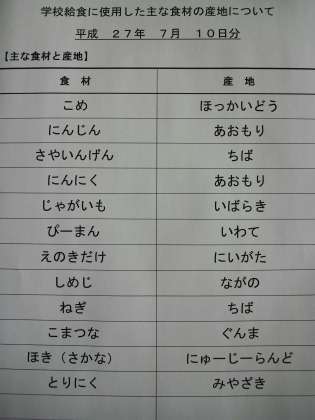 学校給食に使用した主な食材の産地について
平成　２７年　７月　１０日分
【主な食材と産地】
食　材　産　地
こめ　ほっかいどう
にんじん　あおもり
さやいんげん　ちば
にんにく　あおもり
じゃがいも　いばらき
ぴーまん　いわて
えのきだけ　にいがた
しめじ　ながの
ねぎ　ちば
こまつな　ぐんま
ほき（さかな）　にゅーじーらんど
とりにく　みやざき